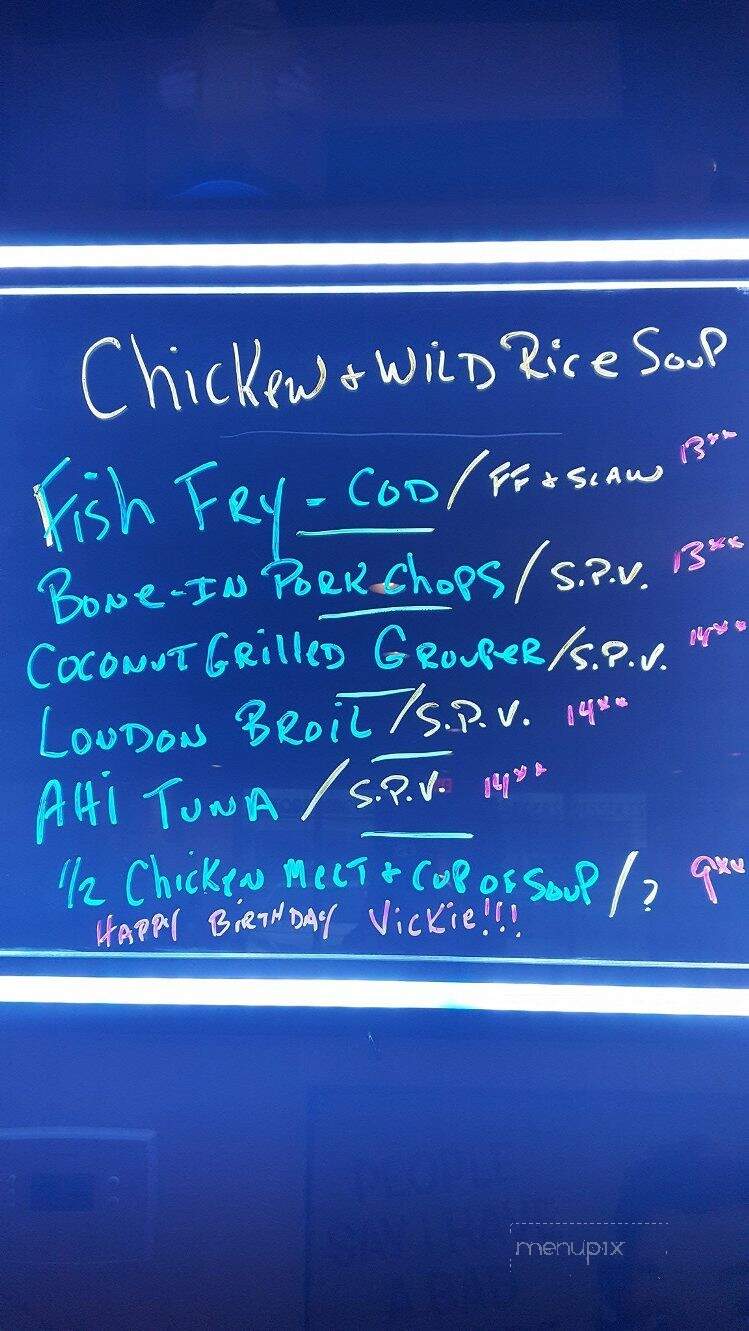 Chicken + Wild Rice Soup
Fish Fry - Cod / FF + Slaw 13xx
Bone-In Pork Chops / S.P.V. 13xx
Coconut Grilled Grouper / S.P.V. 14xx
London Broil / S.P.V. 14xx
Ahi Tuna / S.P.V. 14xx
1/2 Chicken Melt + Cup of Soup / ? 9xx
Happy Birthday Vickie!!!
menupix